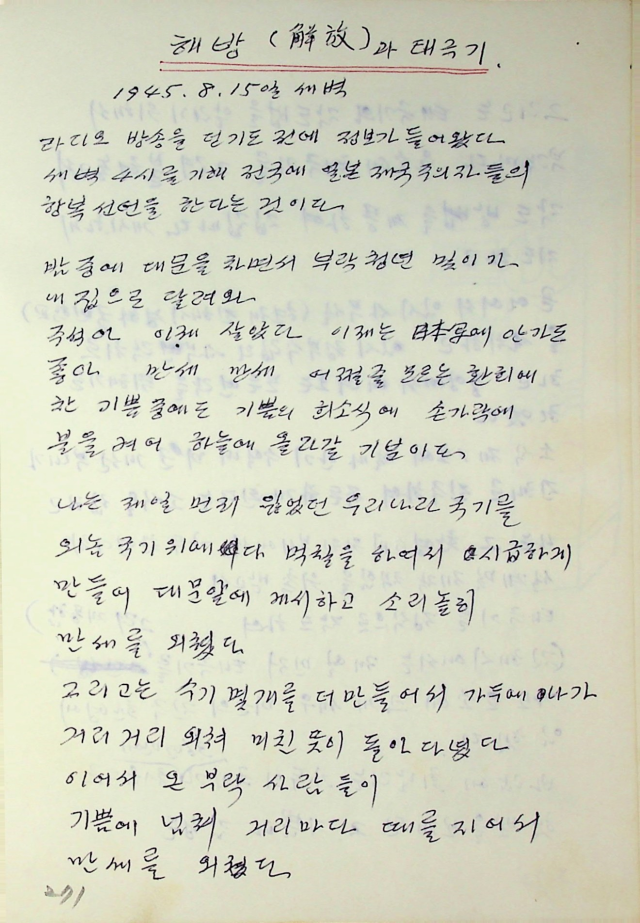 해방 (解放)과 태극기.
1945. 8. 15일 새벽
라디오 방송을 듣기도 전에 정보가 들어왔다.
새벽 4시를 기해 전국에 일본 제국주의자들의
항복 선언을 한다는 것이다.
밤중에 대문을 차면서 부락 청년 몇이가
내 집으로 달려와
이제 살았다 이제는 日本군에 안가도
좋아 만세 만세 어쩔줄 모르는 환희에
찬 기쁨중에도 기쁨의 희소식에 손가락에
불을 켜어 하늘에 올라갈 기남이다.
나는 제일 먼저 잃었던 우리나라 국기를
외놈 국기 위에다 먹칠을 하여서 시급하게
만들어 대문앞에 게시하고 소리높히
만세를 외쳤다
그리고는 수기 몇개를 더 만들어서 가두에 나가
거리거리 외쳐 미친듯이 돌아다녔다
이어서 온 부락 사람들이
기쁨에 넘춰 거리마다 떼를지어서
만세를 외쳤다.
271